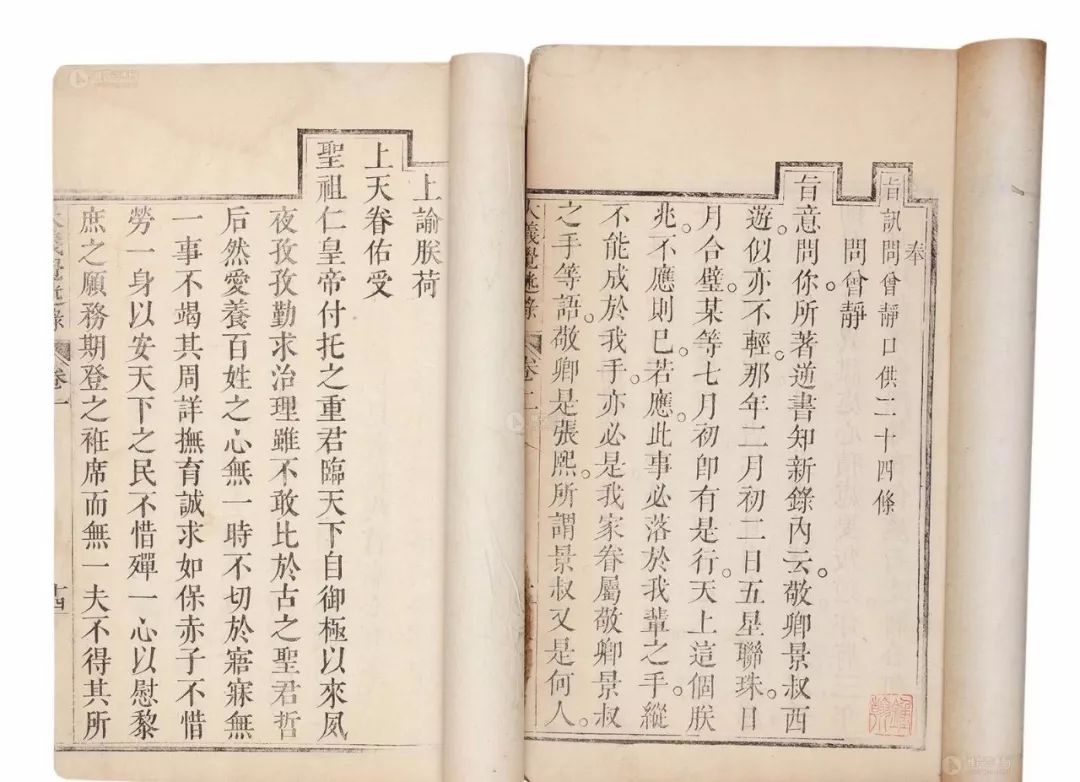 奉
旨訊問曾靜口供二十四條
問曾靜
旨意問你。所著逆書知新錄內云。敬卿景叔西
遊。似亦不輕。那年二月初二日五星聯珠。日
月合璧。某等七月初卽有是行。天上這個朕
兆。不應則已。若應。此事必落於我輩之手。縱
不能成於我手。亦必是我家眷屬敬卿景叔
之手等語。敬卿是張熙。所謂景叔又是何人。
大義覺迷錄 卷二
上諭朕荷
上天眷佑受
聖祖仁皇帝付托之重君臨天下自御極以來夙
夜孜孜勤求治理雖不敢比於古之聖君哲
后然愛養百姓之心無一時不切於寤寐無
一事不竭其周詳撫育誠求如保赤子不惜
勞一身以安天下之民不惜殫一心以慰黎
庶之願務期登之袵席而無一夫不得其所
大義覺迷錄 卷一 十四